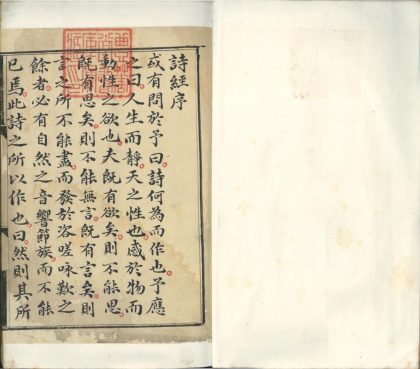 詩經序
或有問於予曰詩何為而作也予應
之曰人生而靜天之性也感於物而
動性之欲也夫既有欲矣則不能無思
既有思矣則不能無言既有言矣則
言之所不能盡而發於咨嗟咏歎之
餘者必有自然之音響節族而不能
已焉此詩之所以作也曰然則其所